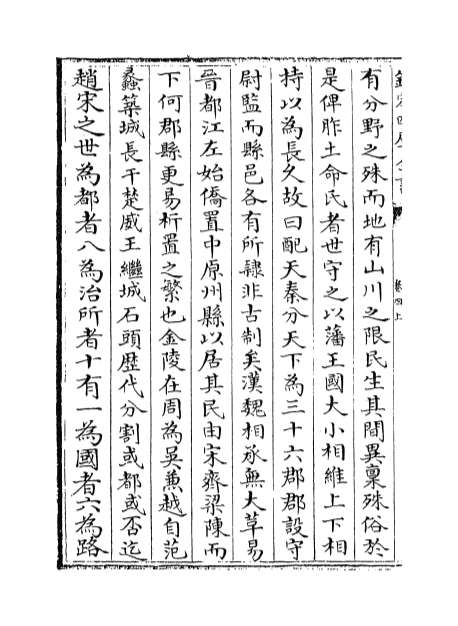 有分野之殊而地有山川之限民生其間異稟殊俗於
是俾胙土命氏者世守之以藩王國大小相維上下相
持以為長久故曰配天秦分天下為三十六郡郡設守
尉監而縣邑各有所隸非古制矣漢魏相承無大草易
晉都江左始僑置中原州縣以居其民由宋齊梁陳而
下何郡縣更易析置之繁也金陵在周為吳兼越自范
蠡築城長干楚威王繼城石頭歴代分割或都或否迄
趙宋之世為都者八為治所者十有一為國者六為路